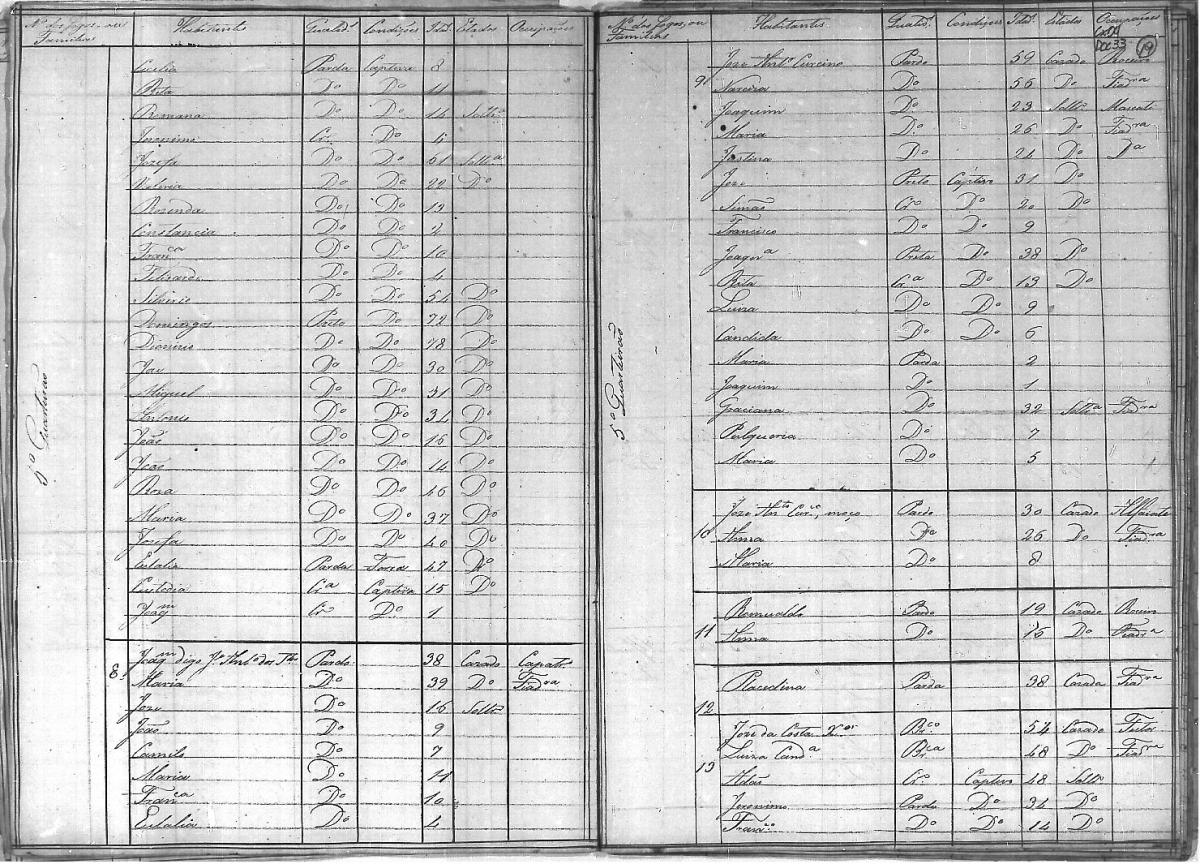 Nº dos Fogos, ou Familias Habitantes Qualidᵉ. Condições Idᵉ. Estados Occupações
5º Quarteirão
Cecilia Parda Captiva 8
Rita Dº Dº 11
Romana Dº Dº 14 Soltrª
Jeronimo Crº. Dº 6
Jozefa Dº Dº 61 Soltª
Valeria Dº Dº 22 Dº
Rozenda Dº Dº 13
Constancia Dº Dº 2
Francª Dº Dº 10
Felisardo Dº Dº 4
Silverio Dº Dº 54 Dº
Domingos Preto Dº 72 Dº
Dionizio Dº Dº 78 Dº
Joze Dº Dº 30 Dº
Miguel Dº Dº 31 Dº
Antonio Dº Dº 34 Dº
João Dº Dº 16 Dº
João Dº Dº 14 Dº
Roza Dº Dº 46 Dº
Maria Dº Dº 37 Dº
Jozefa Dº Dº 40 Dº
Eulalia Parda Forra 47 Dº
Custodia Crª Captiva 15 Dº
Joaqᵐ Crº Dº 1
8. Joaqᵐ digo Jº Antº dos Pardo 38 Cazado
Maria Dº 39 Dº Fiadrª
Joze Dº 16 Soltrº
João Dº 9
Camilo Dº 7
Maria Dº 11
Francª Dº 10
Eulalia Dº 4
Nº dos Fogos, ou Familias Habitantes Qualidᵉ. Condições Idᵉ. Estados Occupações
Doc 33 19
5º Quarteirão
9 Joze Antº Curcino Pardo 59 Cazado Roceiro
Narciza Dº 56 Dº Fiadrª
Joaquim Dº 23 Soltrº Mascate
Maria Dº 26 Dº Fiadrª
Justina Dº 24 Dº Dª
Joze Preto Captivo 31 Dº
Simão Crº Dº 20 Dº
Francisco Dº Dº 9
Joaqnª Preta Dº 38 Dº
Rita Crª Dº 13 Dº
Luiza Dº Dº 9
Candida Dº Dº 6
Maria Parda 2
Joaquim Dº 1
Graciana Dº 32 Soltª Fiadrª
Pulqueria Dº 7
Maria Dº 5
10 Joze Antº Curcº, moço Pardo 30 Cazado Alfaiate
Anna Dº 26 Dº Fiadrª
Maria Dº 8
11 Romualdo Pardo 19 Cazado Roceiro
Anna Dº 16 Dº Fiadrª
12 Placedina Parda 38 Cazada Fiadrª
13 Joze da Costa Xᵒʳ Brcº 54 Cazado Feitor
Luiza Candª Brª 48 Dº Fiadrª
Adão Crº. Captivo 48 Soltrº
Jeronimo Pardo Dº 34 Dº
Francº Dº Dº 14 Dº